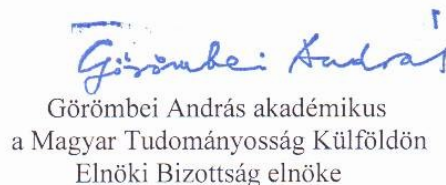 Görömbei András
Görömbei András akadémikus
a Magyar Tudományosság Külföldön
Elnöki Bizottság elnöke